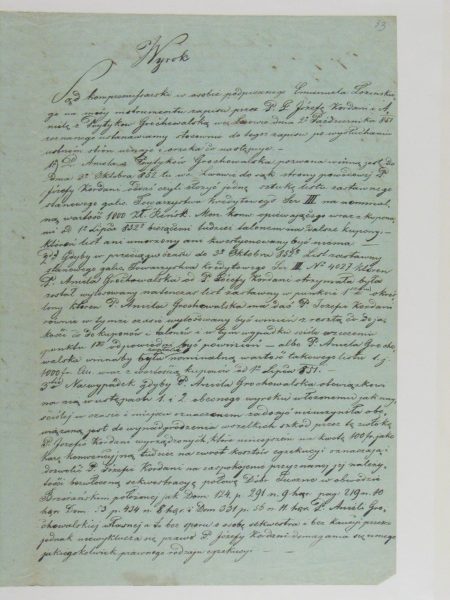 33
Wyrok
Sąd kompromissarski w osobie podpisanego Emanuela
na mocy instrumentu zapisu przez Pę Józefę Kordani i A-
nielę z Grochowalską we Lwowie dnia 2º Października 851
zeznanego ustanowiony stosownie do tego zapisu po wysłuchaniu
ustnem stron uznaje i orzeka co następuje
1º Pani Aniela z Grochowalska pozwana winna jest do
dnia 3º Oktobra 852 we Lwowie do rąk strony powodowej P.
Józefy Kordani oddać czyli złożyć jedną sztukę listu zastawnego
stanowego galic. Towarzystwa Kredytowego Ser III na nominal-
ną wartość 1000 zł. Mon. kon. opiewającego wraz z kupona-
mi od 1º Lipca 852 bieżącemi tudzież talonem na dalsze kupony
któren list ani umorzony ani kwestyonowany być nie ma
2º Gdyby w przeciągu czasu do 3º Oktobra 852 list zastawny
stanowego galic. Towarzystwa kredytowego Ser III Nº 4027 któren
P. Aniela Grochowalska od P. Józefy Kordani otrzymała
został wylosowany natenczas list zastawny w punkcie 1 określony
któren P. Aniela Grochowalska ma dać P. Józefie Kordani
równie w tymże czasie wylosowany być winien z resztą co do ja-
kości co do kuponów i talonu i w tym wypadku
punktu 1º odpowiadać być powinien — albo P. Aniela Grocho-
walska winna by była nominalną wartość takowego listu t. j.
1000 fr. wraz z wartością kuponów od 1º Lipca 851.
3º Na wypadek gdyby P. Aniela Grochowalska obowiązkowi
na się w ustępach 1 i 2 obecnego wyroku włożonemu jak naj-
ściślej w czasie i miejscu oznaczonem zadosyć nieuczyniła obo-
wiązaną jest do wynadgrodzenia wszelkich szkód przez tę zwłokę
P. Józefie Kordani wyrządzonych które niniejszem na kwotę 100 fr. jako
karę konwencyjną tudzież na zwrot kosztów egzekucyi oznaczają
dozwolić P. Józefie Kordani na zaspokojenie przyznanej jej należy-
tości sekwestracyą połowy Dóbr w obwodzie
Brzeżańskim położonej jak Dom 124 p. 291 n. 9 här. pag. 219 n. 10
här. Dom. p. 434 n. 8 här. i Dom 331 p. 55 n. 11 här P. Anieli Gro-
chowalskiej własnej a to bez sporu o osobę sekwestra i bez kaucyi przez co
jednak niewyklucza się prawo P. Józefy Kordani domagania się innego
jakiegokolwiek prawnego rodzaju egzekucyi —